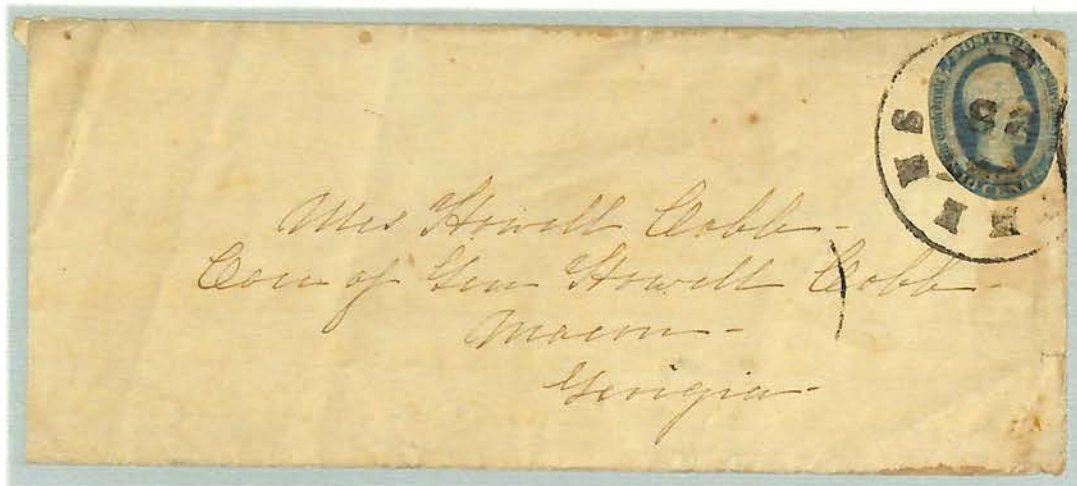 POSTAGE
10 CENTS
Mrs Howell Cobb -
Care of Gen Howell Cobb -
Macon -
Georgia -